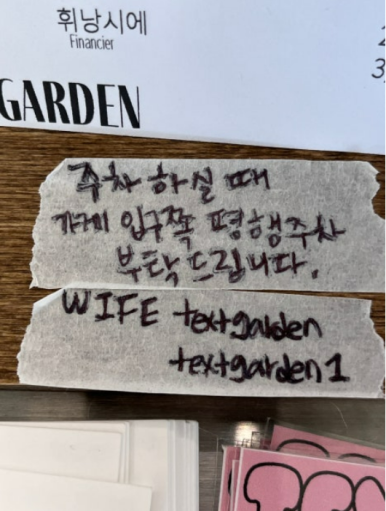 휘낭시에
Financier
GARDEN
주차 하실 때
가구끼 입구쪽 평행주차
부탁드립니다.
WIFE textgarden
textgarden1